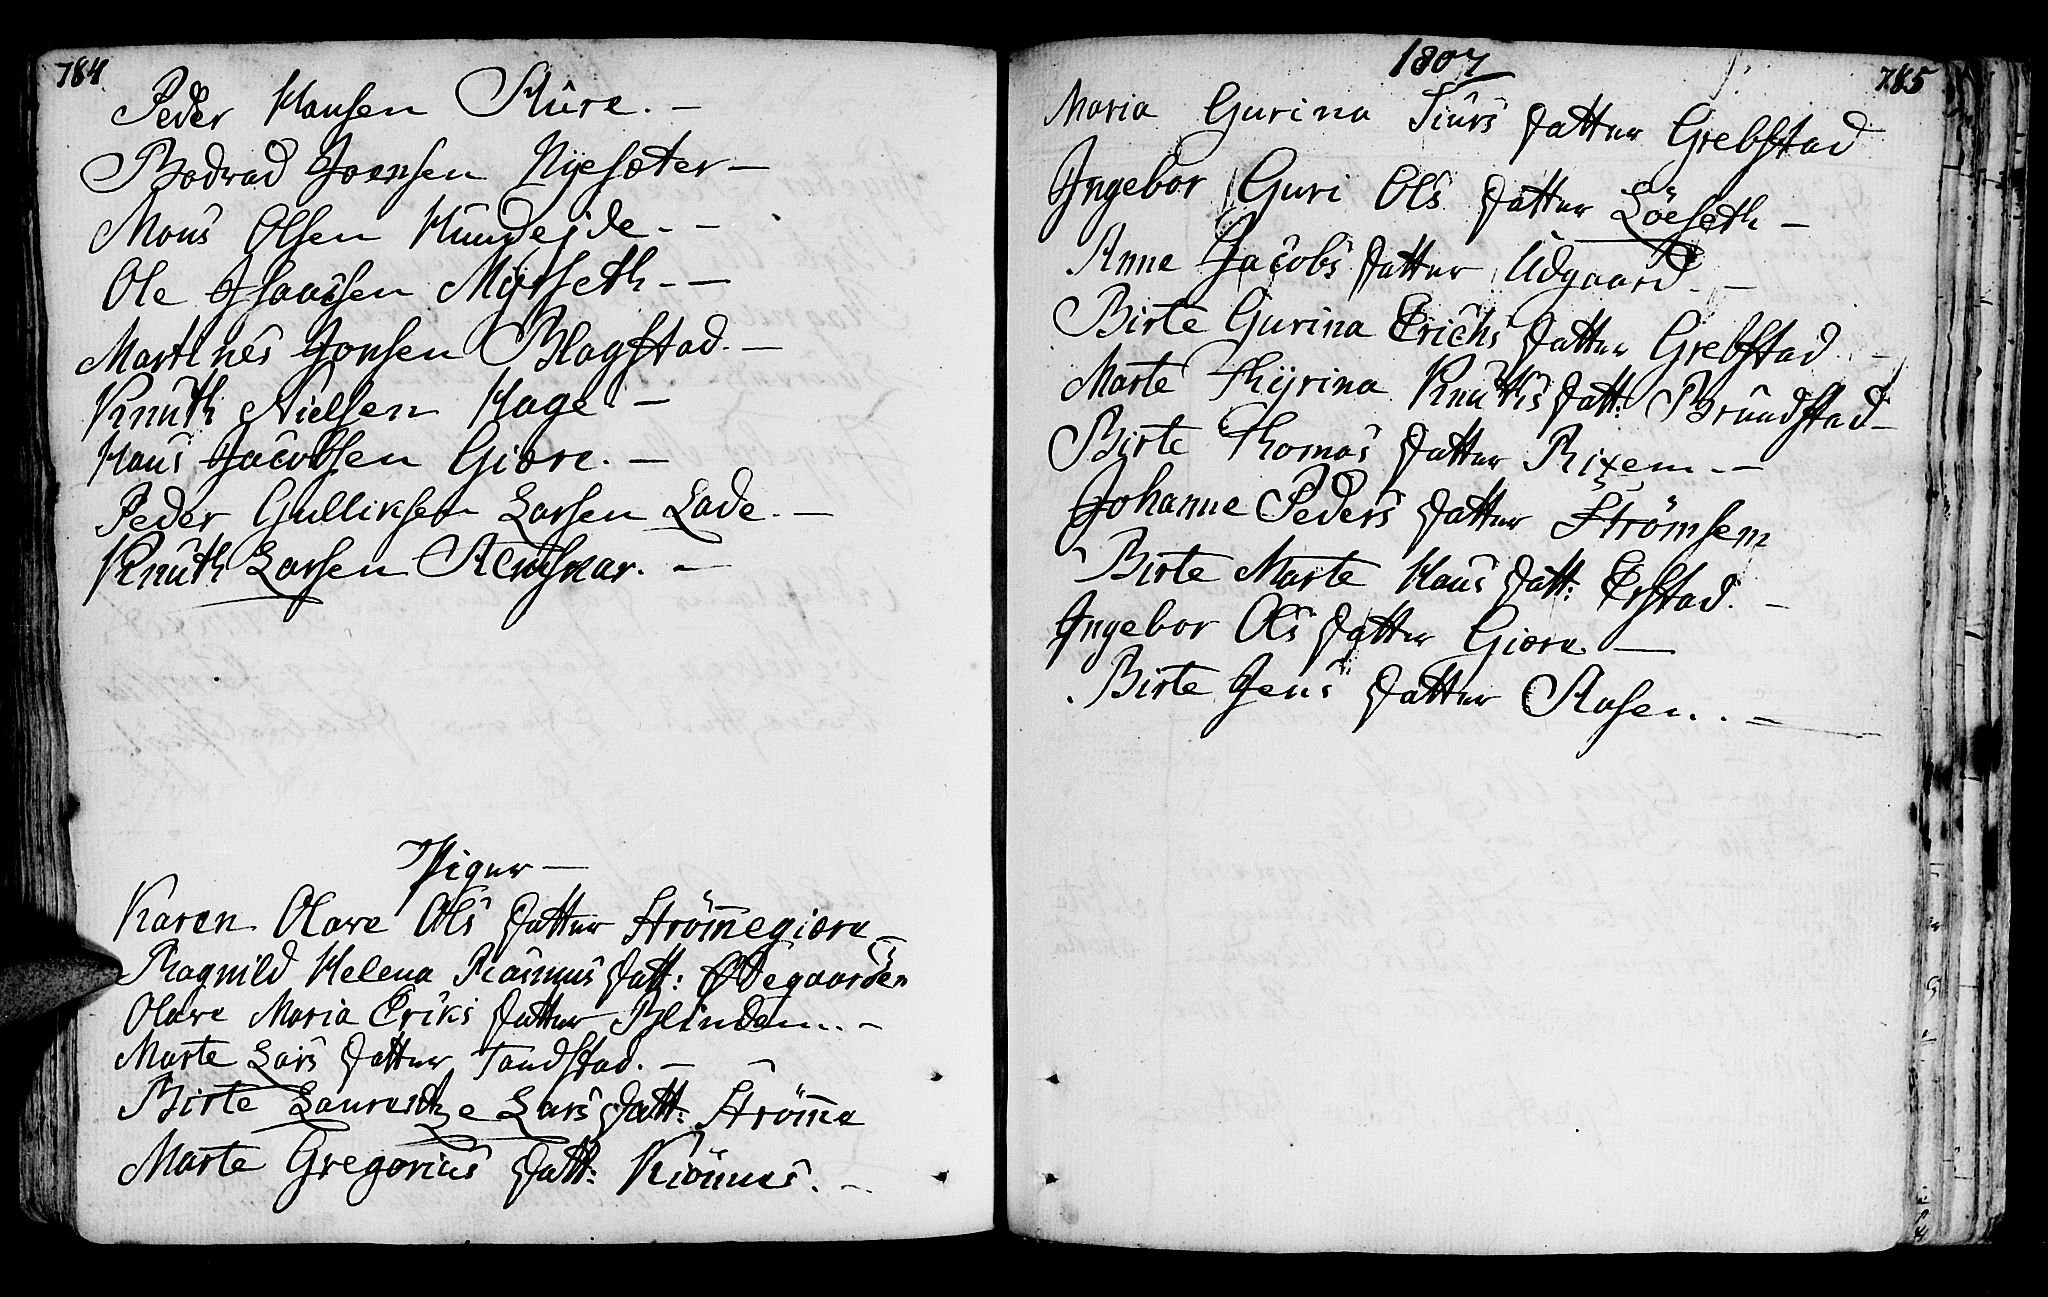 784.
Peder Hansen Aure. —
Bodvad Joensen Nÿesæter —
Mons Olsen Hundejde. —
Ole Jsaacsen Mÿrseth — —
Martines Jonsen Blagstad. —
Knuth Nielsen Hage. —
Hans Jacobsen Giære. —
Peder Gulliksen Larsen Lade. —
Knuth Larsen —
Piger —
Karen Olave Ols Datter Strömegiære —
Ragnild Helena Rasmus Datt: Ødegaarden
Olave Maria Eriks Datter Blinden. —
Marte Lars Datter Tandstad. —
Birte Laurentze Lars Datt: Ströme
Marte Gregorius Datt: Kiönnes. —
1807
785
Maria Gurina Siurs Datter Grebstad
Ingebor Guri Ols Datter Löeseth —
Anne Jacobs Datter Udgaard. —
Birte Gurina Erichs Datter Grebstad —
Marte Thÿrina Knuths Datt: Brundstad —
Birte Thomas Datter Rixem. —
Johanne Peders Datter Strömsem
Birte Marte Hans Datt: Erstad. —
Ingebor Ols Datter Giære —
Birte Jens Datter Aasen. . —